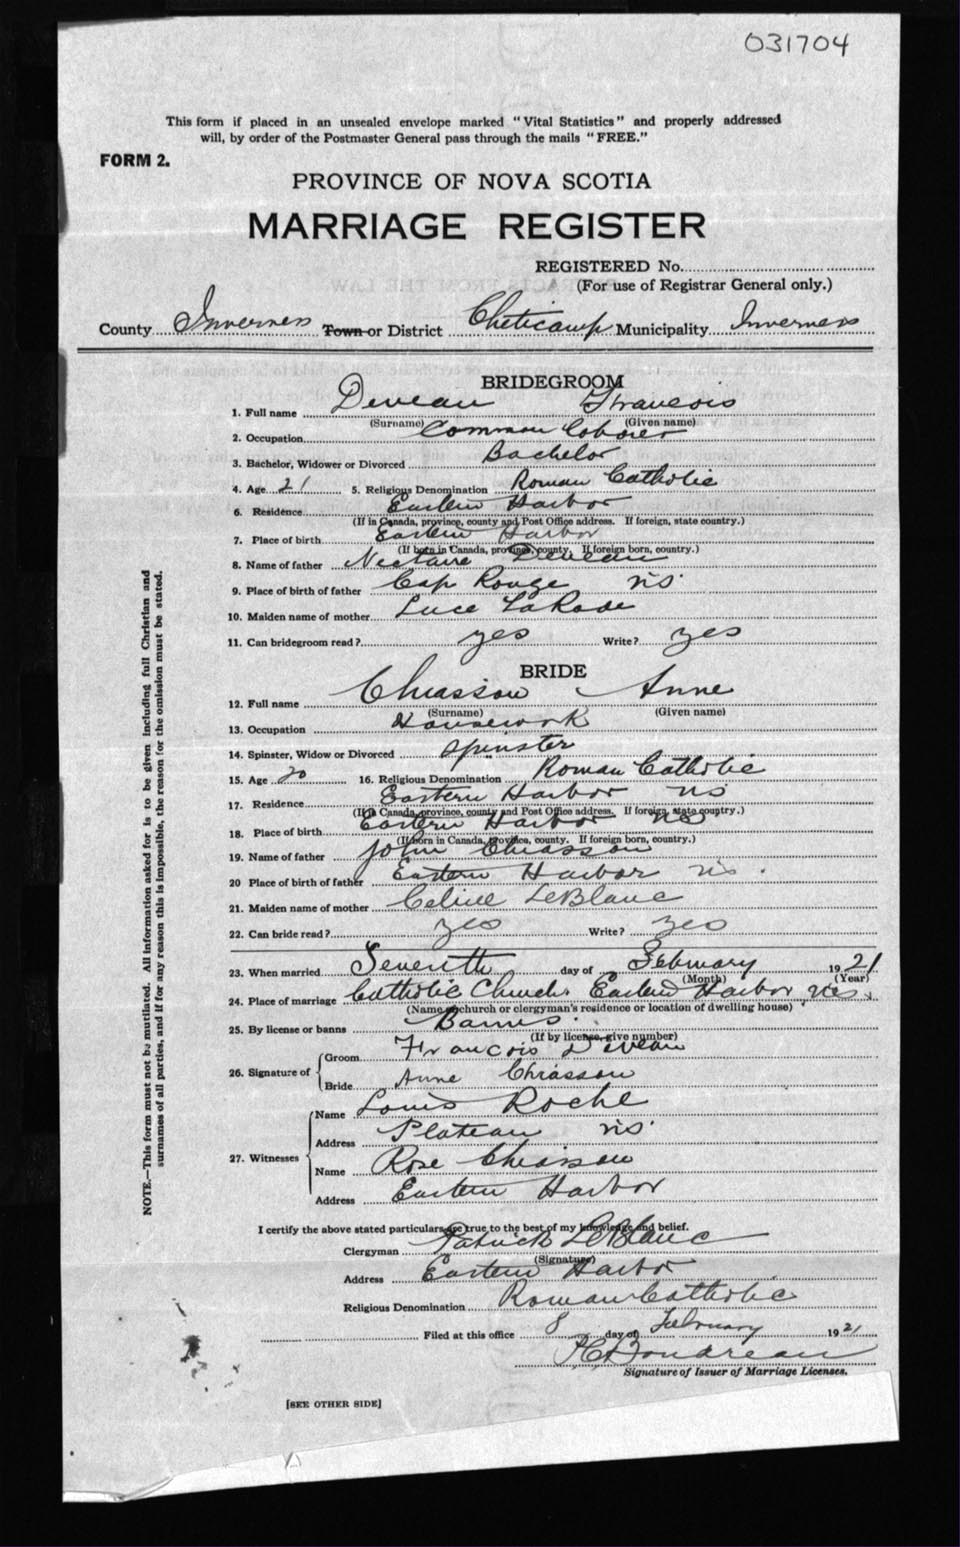 031704
This form if placed in an unsealed envelope marked "Vital Statistics" and properly addressed
will, by order of the Postmaster General pass through the mails "FREE."
FORM 2.
PROVINCE OF NOVA SCOTIA
MARRIAGE REGISTER
REGISTERED No.
(For use of Registrar General only.)
County Inverness Town or District Cheticamp Municipality Inverness
BRIDEGROOM
1. Full name Deveau Francois
(Surname) (Given name)
2. Occupation Common Laborer
3. Bachelor, Widower or Divorced Bachelor
4. Age 21 5. Religious Denomination Roman Catholic
6. Residence Eastern Harbor
(If in Canada, province, county and Post Office address. If foreign, state country.)
7. Place of birth Eastern Harbor
(If born in Canada, province, county. If foreign born, country.)
8. Name of father Nectaire Deveau
9. Place of birth of father Cap Rouge NS.
10. Maiden name of mother Luce LaRade
11. Can bridegroom read? yes Write? yes
BRIDE
12. Full name Chiasson Anne
(Surname) (Given name)
13. Occupation Housework
14. Spinster, Widow or Divorced Spinster
15. Age 20 16. Religious Denomination Roman Catholic
17. Residence Eastern Harbor NS
(If in Canada, province, county and Post Office address. If foreign, state country.)
18. Place of birth Eastern Harbor NS
(If born in Canada, province, county. If foreign born, country.)
19. Name of father John Chiasson
20 Place of birth of father Eastern Harbor NS.
21. Maiden name of mother Celine LeBlanc
22. Can bride read? yes Write? yes
23. When married Seventh day of February 1921
(Month) (Year)
24. Place of marriage Catholic Church. Eastern Harbor, NS.
(Name of church or clergyman's residence or location of dwelling house)
25. By license or banns Banns.
(If by license, give number)
26. Signature of Groom Francois Deveau
Bride Anne Chiasson
27. Witnesses Name Louis Roche
Address Plateau NS.
Name Rose Chiasson
Address Eastern Harbor
I certify the above stated particulars are true to the best of my knowledge and belief.
Clergyman Patrick LeBlanc
(Signature)
Address Eastern Harbor
Religious Denomination Roman Catholic
Filed at this office 8 day of February 1921
Boudreau
Signature of Issuer of Marriage Licenses.
[SEE OTHER SIDE]
NOTE.—This form must not be mutilated. All information asked for is to be given including full Christian and
surnames of all parties, and if for any reason this is impossible, the reason for the omission must be stated.